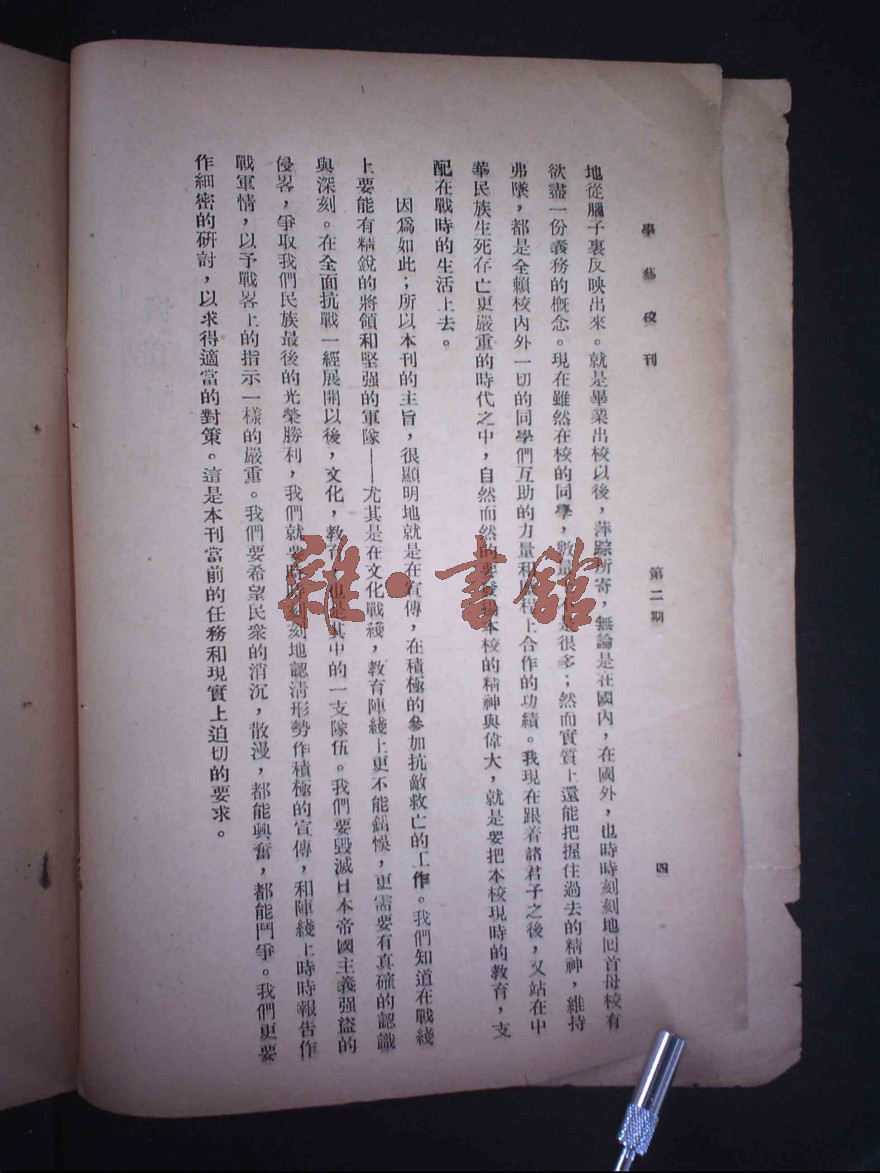 學藝校刊 第二期 四
地從腦子裏反映出來。就是畢業出校以後，萍踪所寄，無論是在國內，在國外，也時時刻刻地回首母校有
欲盡一份義務的概念。現在雖然在校的同學，數量 很多；然而實質上還能把握住過去的精神，維持
弗墜，都是全賴校內外一切的同學們互助的力量和 程上合作的功績。我現在跟着諸君子之後，又站在中
華民族生死存亡更嚴重的時代之中，自然而然的要 本校的精神與偉大，就是要把本校現時的教育，支
配在戰時的生活上去。
因爲如此；所以本刊的主旨，很顯明地就是在宣傳，在積極的參加抗敵救亡的工作。我們知道在戰綫
上要能有精銳的將領和堅强的軍隊——尤其是在文化戰綫，教育陣綫上更不能錯悞，更需要有真確的認識
與深刻。在全面抗戰一經展開以後，文化，教育，也是其中的一支隊伍。我們要毀滅日本帝國主義强盜的
侵畧，爭取我們民族最後的光榮勝利，我們就要時時刻刻地認淸形勢作積極的宣傳，和陣綫上時時報告作
戰軍情，以予戰畧上的指示一樣的嚴重。我們要希望民衆的消沉，散漫，都能興奮，都能鬥爭。我們更要
作細密的研討，以求得適當的對策。這是本刊當前的任務和現實上迫切的要求。
雜·書館